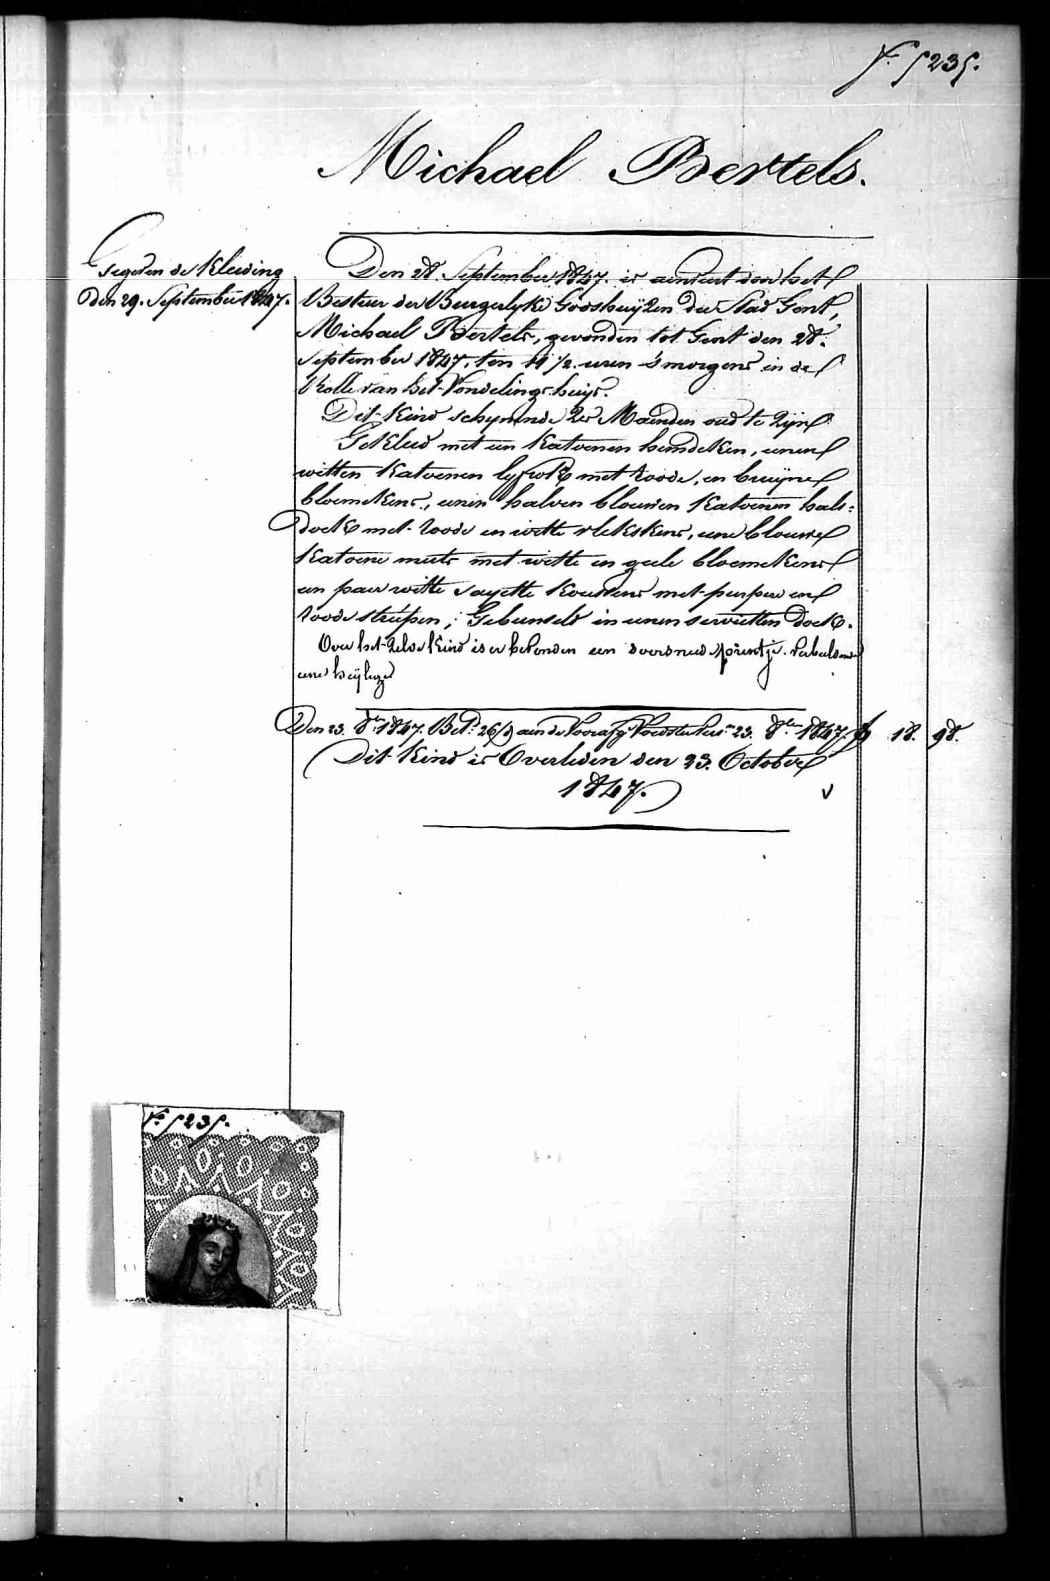 f. 5235.
Michael Bertels.
Gegeven de Kleeding
den 29. September 1847.
Den 28. September 1847. is aenveert door het
Bestuer der Burgerlyke Godshuyzen der Stad Gent,
Michael Bertels, gevonden tot Gent den 28.
September 1847, ten 11 1/2 uren s'morgens in de
Rolle van het Vondelingshuys.
Dit Kind schynende 2 Maenden oud te zyn
Gekleed met een katoenen hemdeken, eenen
witten katoenen lyfrok met roode, en bruyne
bloemekens, eenen halven blauwen katoenen hals=
doek met roode en witte vlekskens, eene blauwe
katoene muts met witte en geele bloemekens
een paer witte sayette koussens met purpere en
roode streepen, Gebunseld in eenen servietten doek.
Over het zelve kind is er bevonden een doorsneed sprintje verbeeldende
eene heylige
Den 23. 8br 1847. Bet. 26/9 aen de voorafg 23. 8br 1847. f 18. 98.
Dit Kind is Overleden den 23. October
1847.
f. 5235.